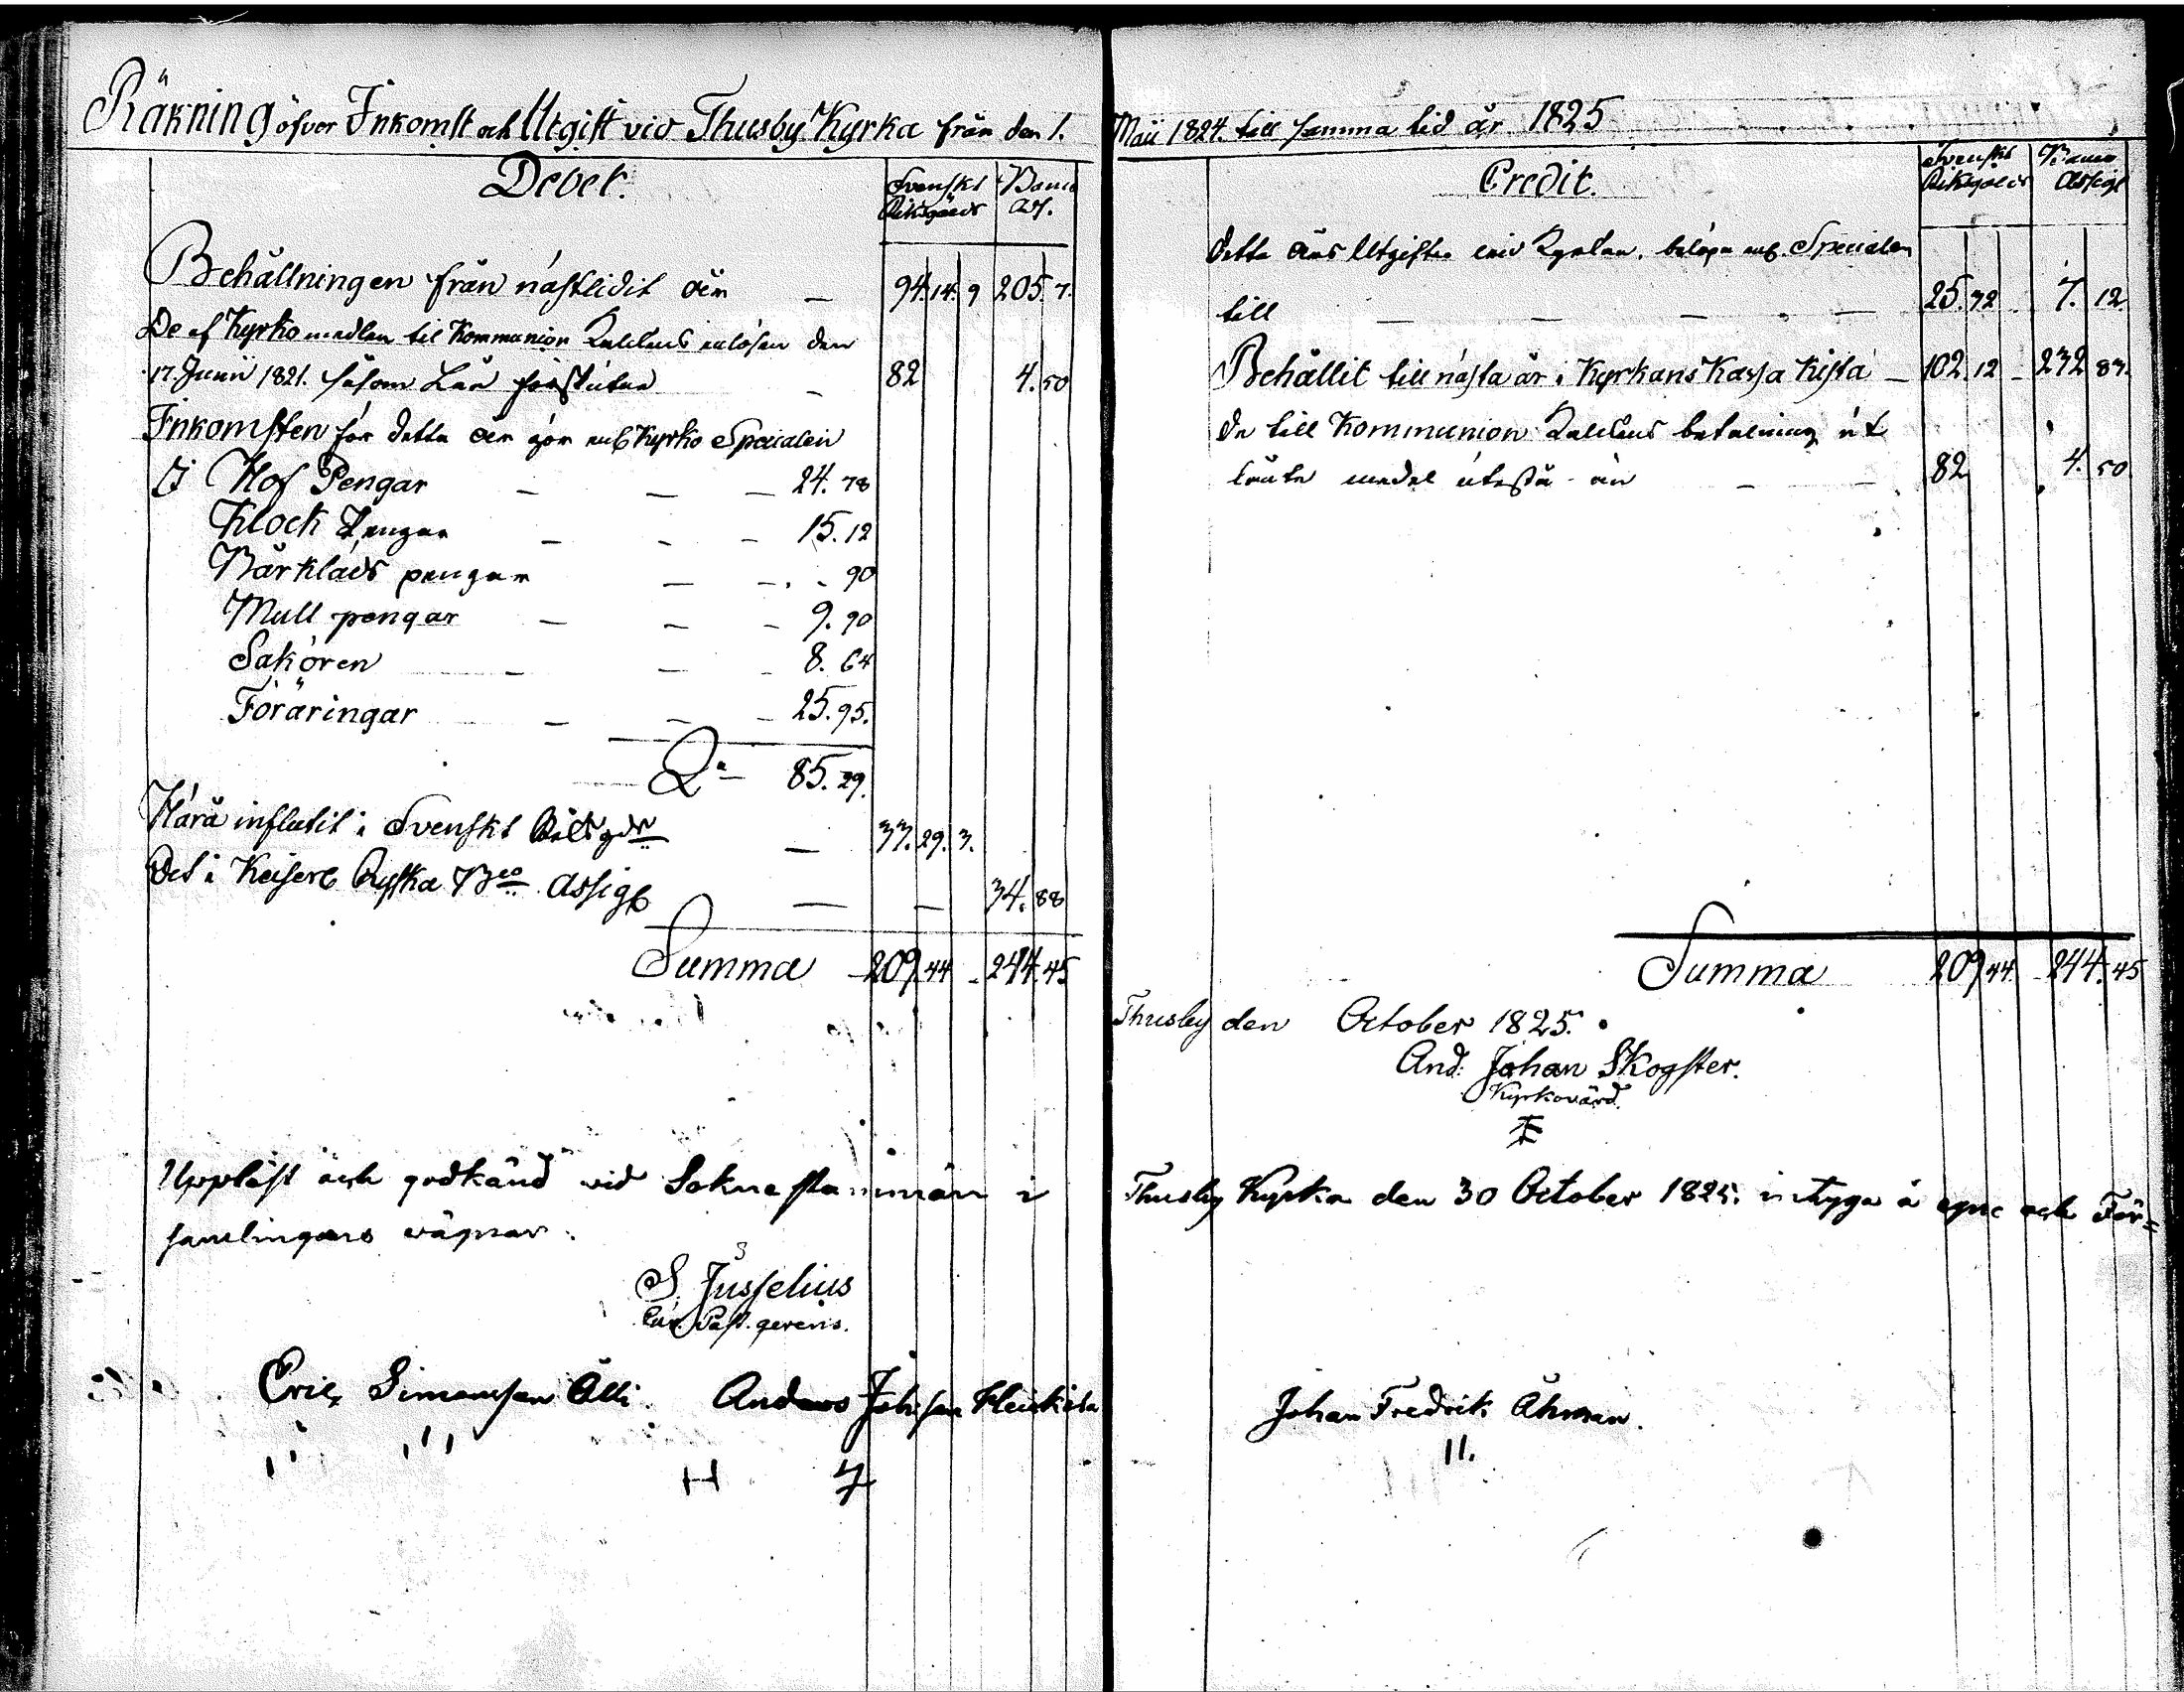 Räkning öfver Inkomst och Utgift vid Thusby Kyrka från den 1.
Debet.
Svenskt Banco
Riksgälds Ass.
Behållningen från nästlidit år — 94. 14. 9 205. 7.
De af Kyrko medlen til Kommunion Kalkens inlösen den
17 Junii 1821. såsom Lån förskutna — 82 4. 50
Inkomsten för detta år gör enl Kyrko Specialen
I Håf Pengar — — — 24. 78
Klock Pengar — — — 15. 12
Bårkläds pengar — — . - 90
Mull pengar — — — 9. 90
Sakören — — — 8. 64
Föräringar — — — 25. 95.
85. 29.
Härå influtit i Svenskt Riksgds — 37. 29. 3.
Det i Keiserl Ryska Bco Assigl — — 34. 88
Summa — 209 44 - 244. 45
Uppläst och godkänd vid Sokne stamman i
samlingens vägnar.
S. Jusselius
Past. gerens.
Eric Simonsson Olli. Anders Johsson
H 7
Maii 1824. till samma tid år 1825
Credit.
Svenskt Banco
Riksgälds Assigl
Detta års Utgifter vid Kyrkan, belöpa enl. Specialen
till — — — — 25. 72 7. 12
Behållit till nästa år i Kyrkans Kassa Kista — 102. 12 — 232 83.
De till Kommunion Kalkens betalning ut
lånte medel utestå än — — 82 4. 50
Summa 209 44. 244. 45
Thusby den October 1825.
And: Johan Skogster.
Kyrkovärd.
Thusby Kyrka den 30 October 1825. intyga å egne och För=
Johan Fredrik Åhman.
11.